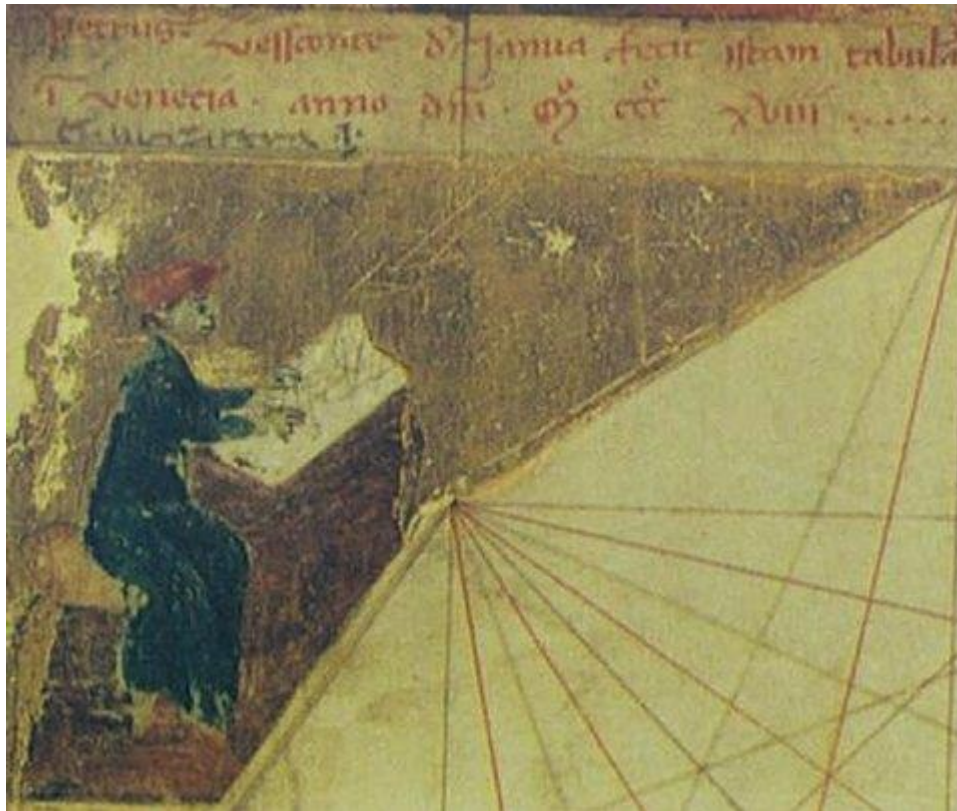 Petrus vessconte d' Janua fecit istam tabulā
ī venecia · anno dñi · m̊ ccc̊ xviii ......